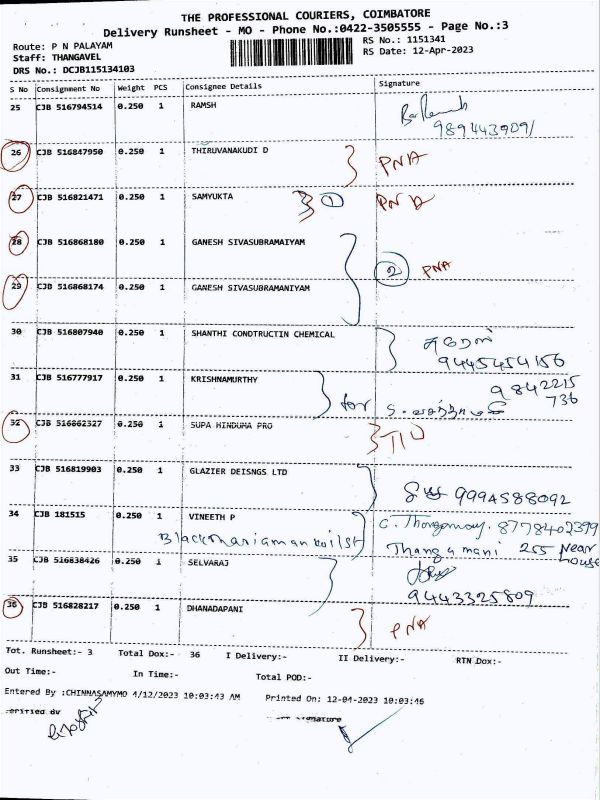 THE PROFESSIONAL COURIERS, COIMBATORE
Delivery Runsheet - MO - Phone No.:0422-3505555 - Page No.:3
Route: P N PALAYAM RS No.: 1151341
Staff: THANGAVEL RS Date: 12-Apr-2023
DRS No.: DCJB115134103
S No Consignment No Weight PCS Consignee Details Signature
25 CJB 516794514 0.250 1 RAMSH
9894439091
26 CJB 516847950 0.250 1 THIRUVANAKUDI D PNA
27 CJB 516821471 0.250 1 SAMYUKTA 1 PNA
28 CJB 516868180 0.250 1 GANESH SIVASUBRAMAIYAM
2 PNA
29 CJB 516868174 0.250 1 GANESH SIVASUBRAMANIYAM
30 CJB 516807940 0.250 1 SHANTHI CONDTRUCTIN CHEMICAL
9445454156
31 CJB 516777917 0.250 1 KRISHNAMURTHY 9842215
for 736
32 CJB 516862327 0.250 1 SUPA HINDUHA PRO
33 CJB 516819903 0.250 1 GLAZIER DEISNGS LTD
9994588092
34 CJB 181515 0.250 1 VINEETH P 8778402399
Blackmariamankoilst Thangamani 255 Near House
35 CJB 516838426 0.250 1 SELVARAJ
9443325809
36 CJB 516828217 0.250 1 DHANADAPANI PNA
Tot. Runsheet:- 3 Total Dox:- 36 I Delivery:- II Delivery:- RTN Dox:-
Out Time:- In Time:- Total POD:-
Entered By :CHINNASAMYMO 4/12/2023 10:03:43 AM Printed On: 12-04-2023 10:03:46
Verified By Signature